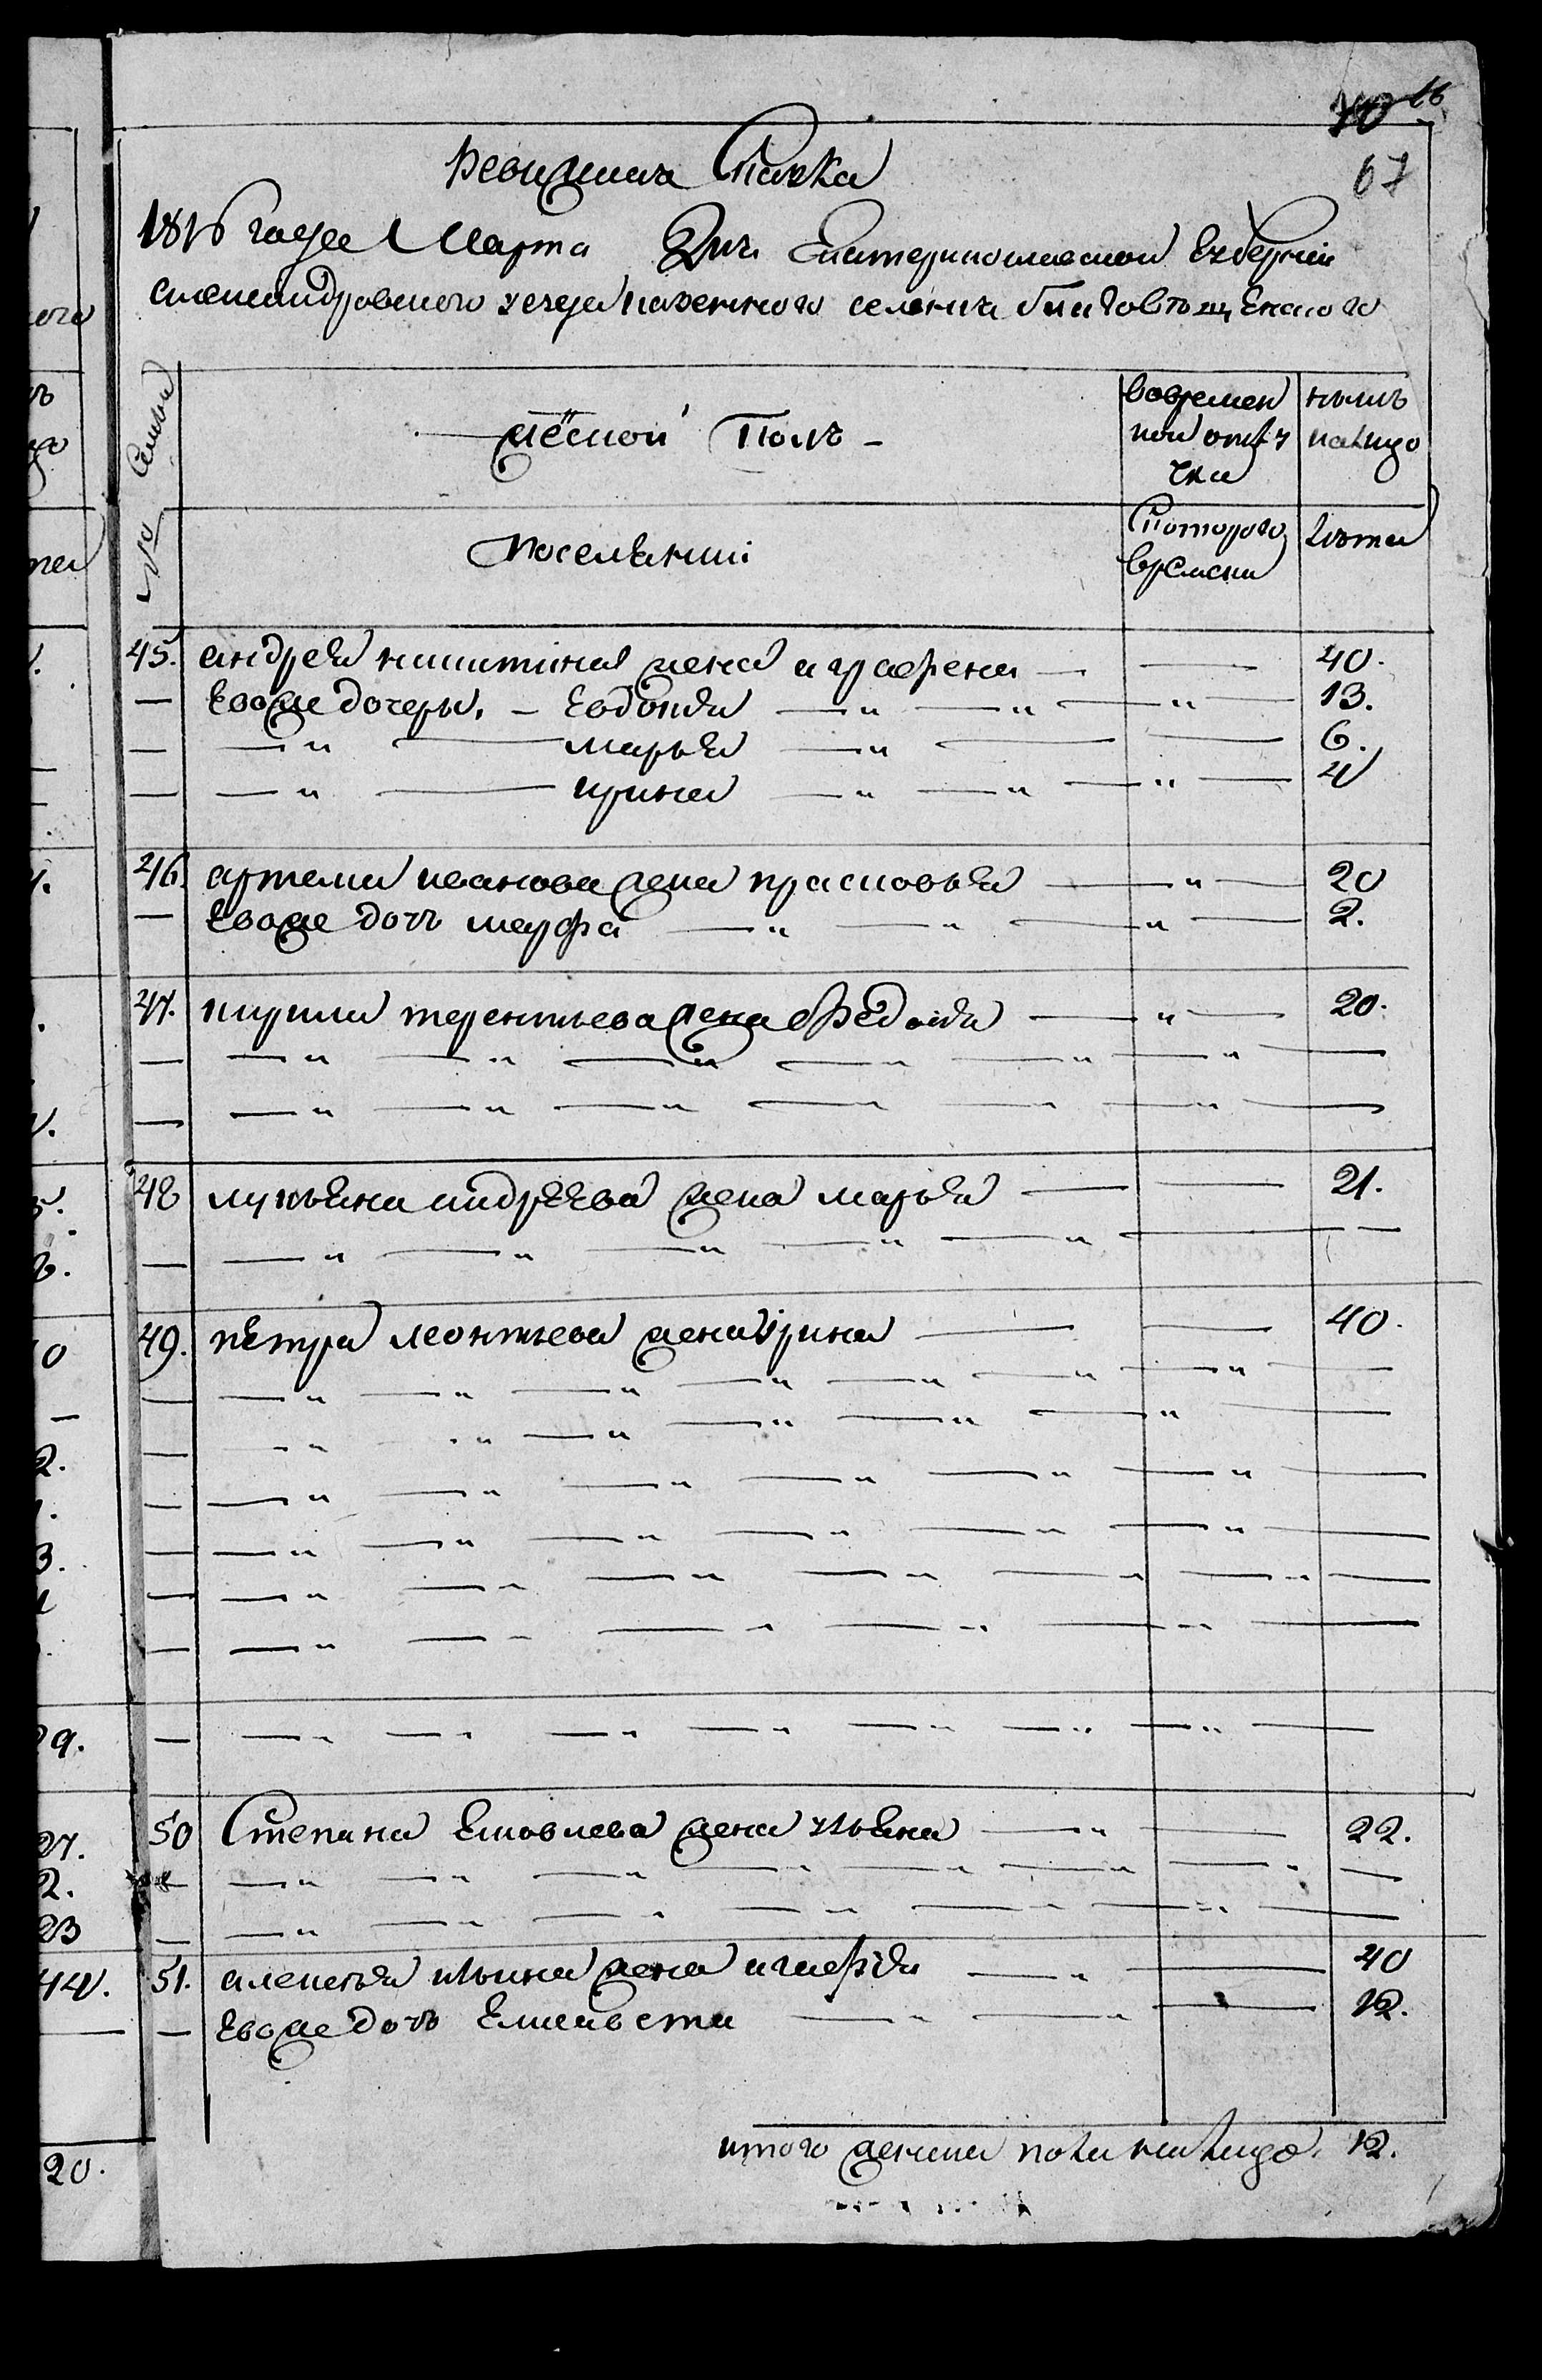 16
67
Ревижская Скаска
1816 года Марта дня Екатеринославской Губернии
Александровского уезда казенного селения Благовещенского
№ Семьи
женской Полъ
Во времен
ной отлу
чки
нынъ
налицо
Поселяний
С которого
времени
Лѣта
45. андрея никитина жена аграфена 40.
— Его же дочеры. – Евдокия — " — " — " — 13.
— — " — марья — " — 6.
— — " — ирина — " — " — " — 4
46. артема иванова жена прасковья — " — 20
— Его же дочъ марфа — " — " — " — 2.
47. кирила терентьева жена Федосия — " — 20.
— — " — " — " — " — " — " —
— — " — " — " — " — " — " —
48 лукьяна андреева жена марья — — 21.
— — " — " — " — " — " — —
49. петра леонтьева жена ирина — — 40.
— — " — " — " — " — " — " — " —
— — " — " — " — " — " — " —
— — " — " — " — " — " — " —
— — " — " — " — " — " — " —
— — " — " — " — " — " — " —
— — " — " — " — " — " —
— — " — " — " — " — " — " — " —
50 Степана Яковлева жена ульяна — " — 22.
— — " — " — " — " — " — " — " —
— — " — " — " — " — " — " —
51. алексея ильина жена агафия — " — 40
— Его же дочъ Елисавета — " — " — 12.
итого женска пола налицо. 12.